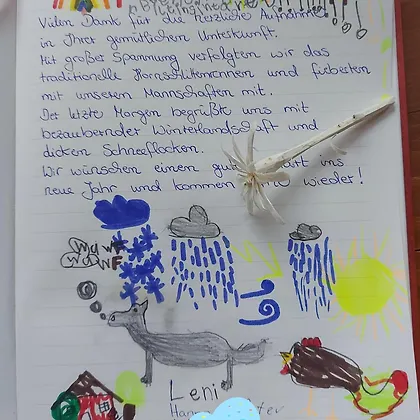 Vielen Dank für die herzliche Aufnahme
in Ihrer gemütlichen Unterkunft.
Mit großer Spannung verfolgten wir das
traditionelle Hornschlittenrennen und fieberten
mit unseren Mannschaften mit.
Der letzte Morgen begrüßte uns mit
bezaubernder Winterlandschaft und
dicken Schneeflocken.
Wir wünschen einen ins
neue Jahr und kommen wieder!
WUWF
WAWF
Leni